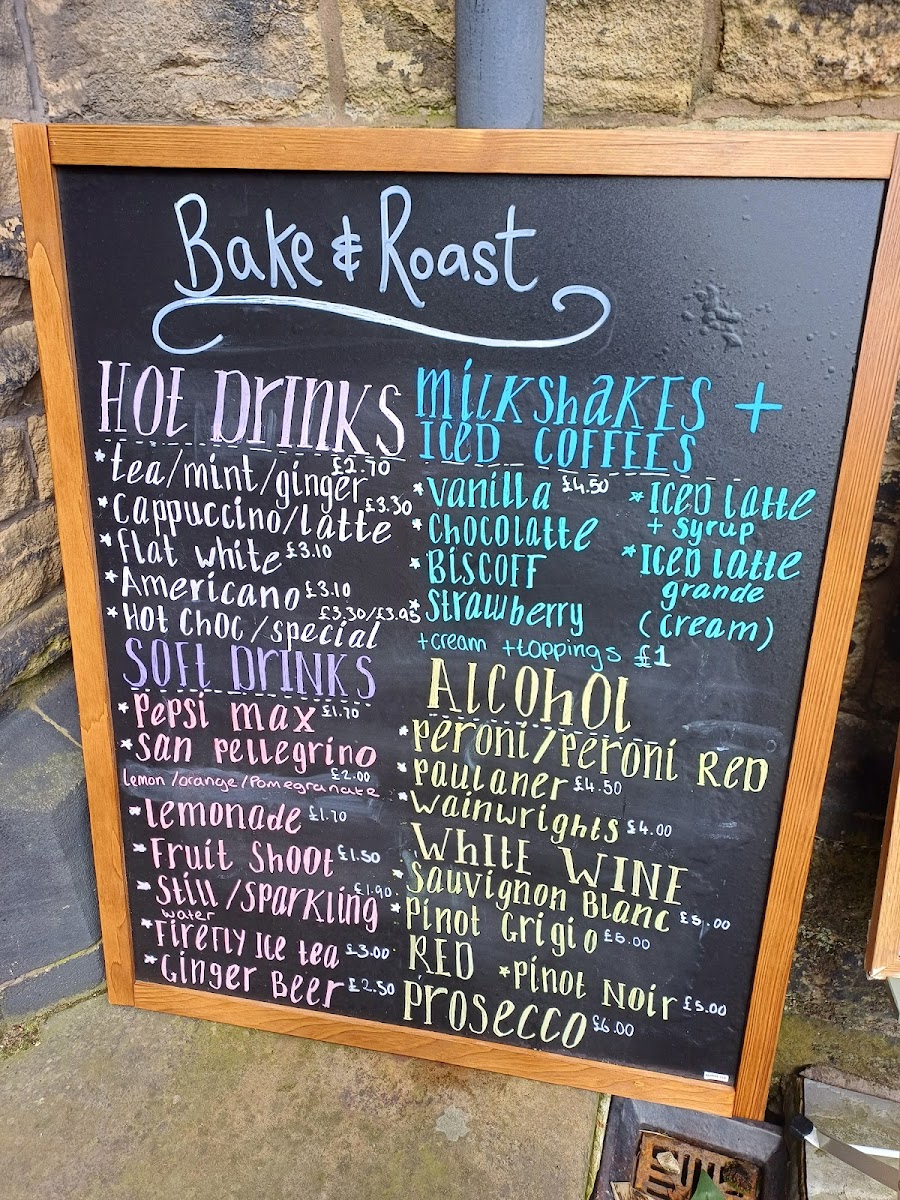 Bake & Roast
HOT DRINKS
*tea/mint/ginger £2.70
*Cappuccino/latte £3.30
*flat white £3.10
*Americano £3.10
*HOT CHOC/special £3.30/£3.95
SOFT DRINKS
*Pepsi max £1.70
*San pellegrino £2.00
Lemon/orange/Pomegranate
*Lemonade £1.70
*Fruit Shoot £1.50
*Still/Sparkling £1.90
water
*Firefly Ice tea £3.00
*Ginger Beer £2.50
MILKSHAKES +
ICED COFFEES
*vanilla £4.50
*Chocolatte
*BISCOFF
*Strawberry
*ICED latte
+ syrup
*ICED latte
grande
(cream)
+cream +toppings £1
ALCOHOL
*peroni/peroni RED
*paulaner £4.50
*Wainwrights £4.00
WHITE WINE
*Sauvignon Blanc £5.00
*Pinot Grigio £5.00
RED *Pinot Noir £5.00
Prosecco £6.00